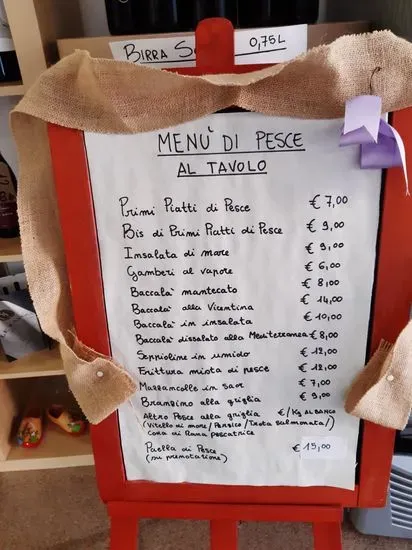 BIRRA S 0,75L
MENÙ DI PESCE
AL TAVOLO
Primi Piatti di Pesce € 7,00
Bis di Primi Piatti di Pesce € 9,00
Insalata di mare € 9,00
Gamberi al vapore € 6,00
Baccala' mantecato € 8,00
Baccala' alla Vicentina € 14,00
Baccala' in insalata € 10,00
Baccala' dissalato alla Mediterranea € 8,00
Seppioline in umido € 12,00
Frittura mista di pesce € 12,00
Mazzancolle in saor € 7,00
Branzino alla griglia € 9,00
Altro Pesce alla griglia €/Kg AL BANCO
(Vitello di mare/Persico/Trota salmonata/)
Coda di Rana pescatrice
Paella di Pesce € 15,00
(su prenotazione)